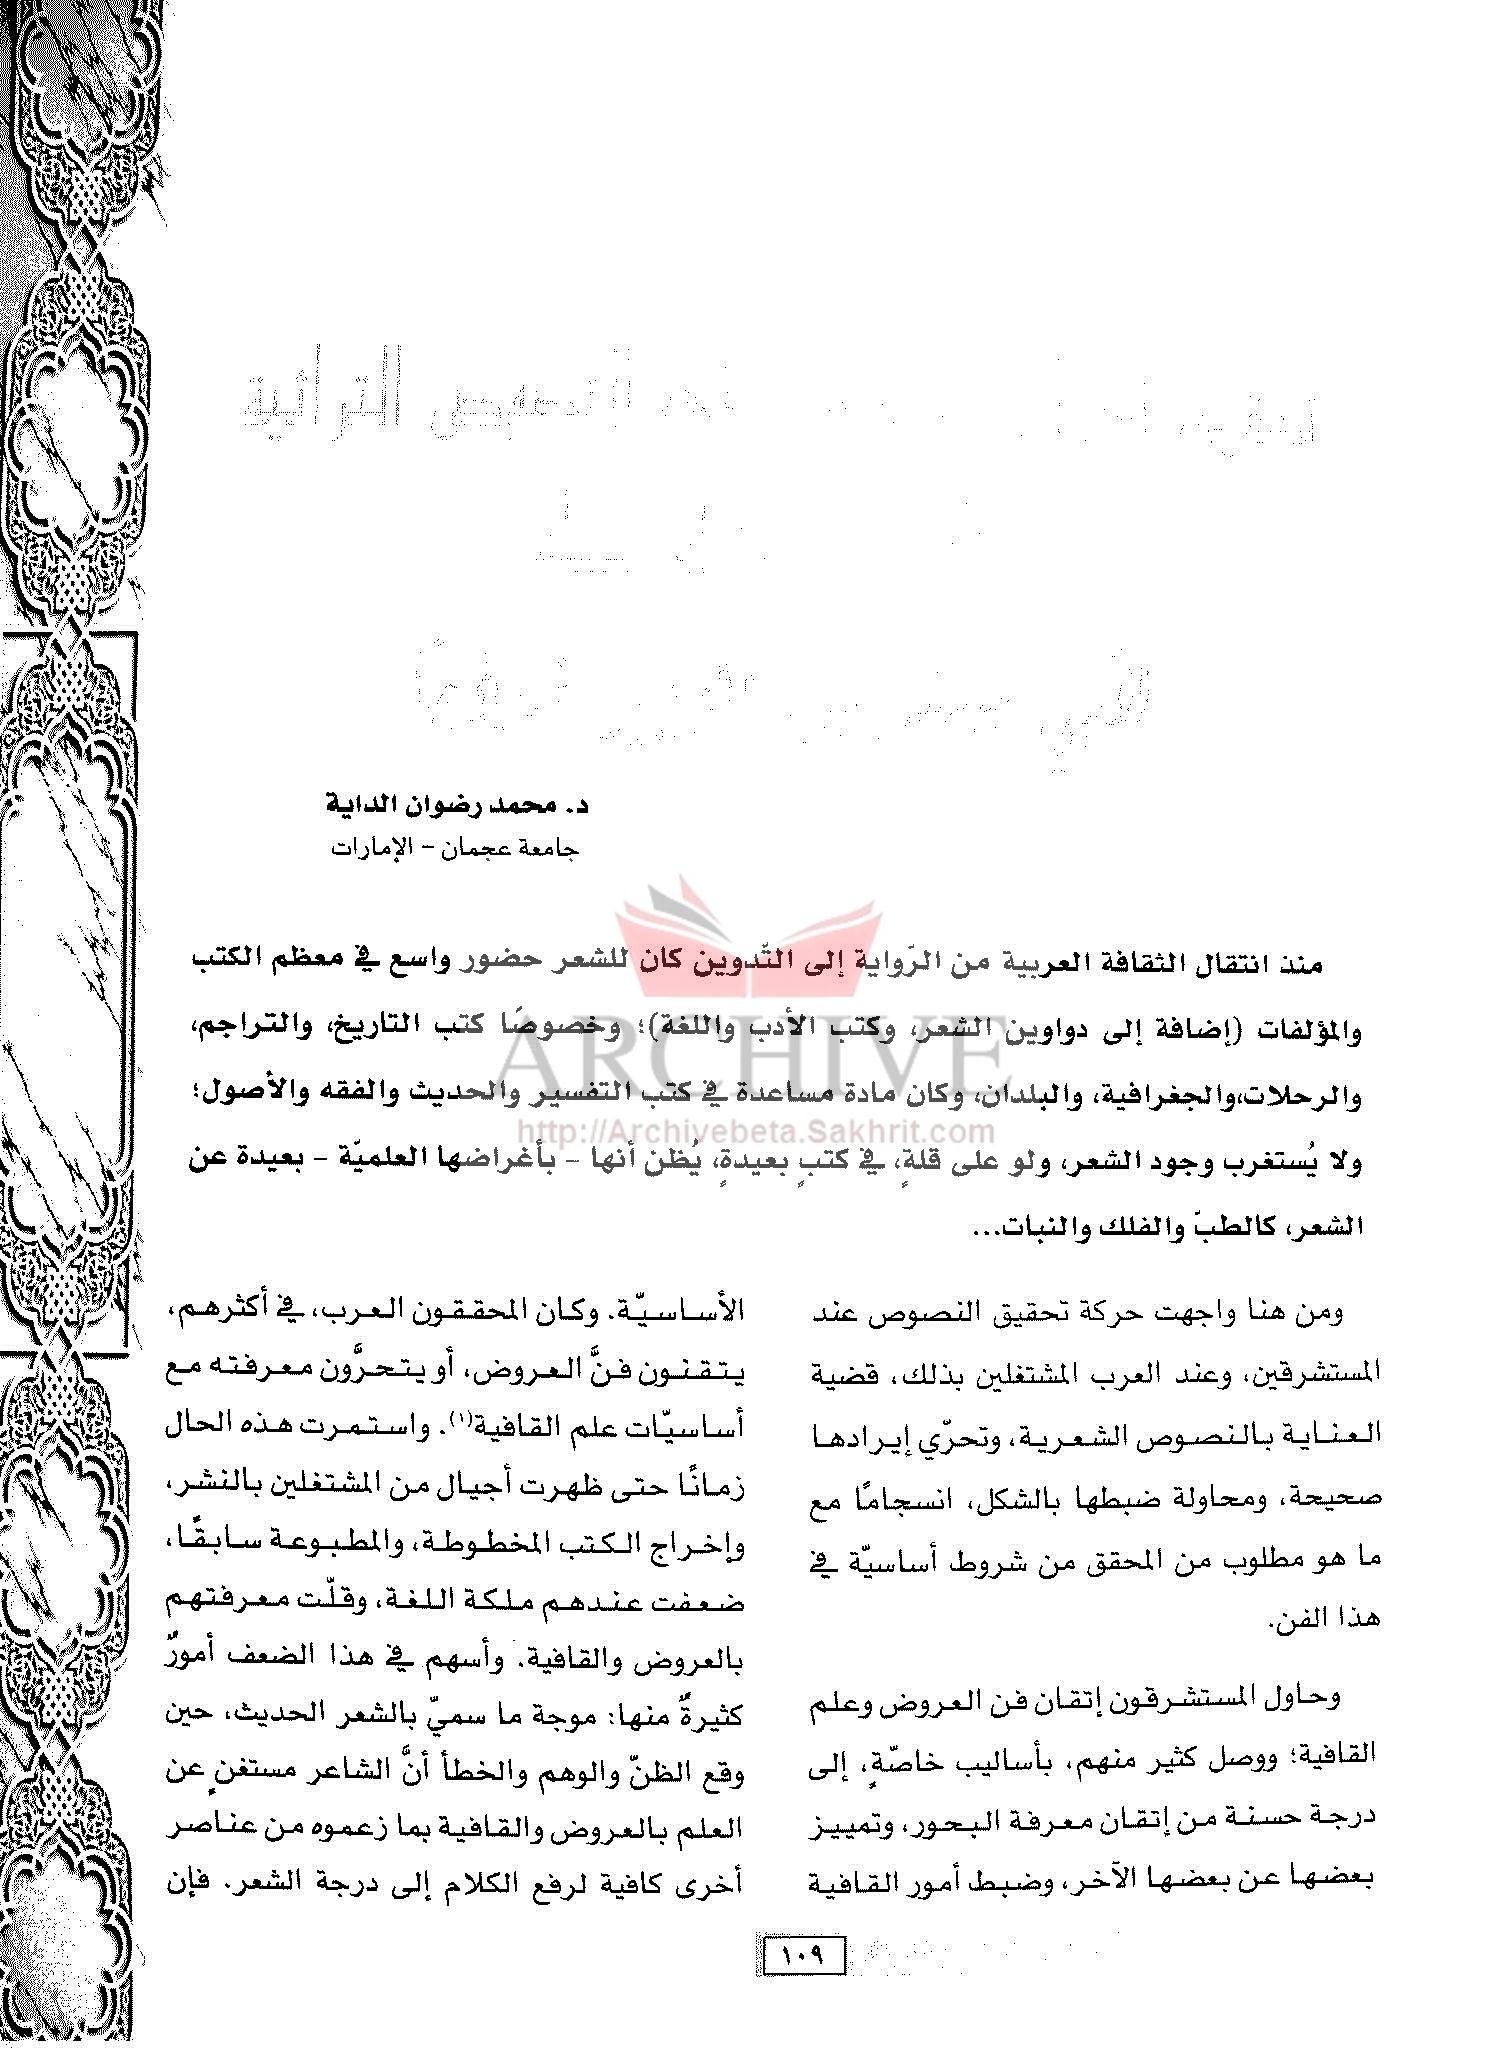 التراثية
د. محمد رضوان الداية
جامعة عجمان – الإمارات
منذ انتقال الثقافة العربية من الرّواية إلى التّدوين كان للشعر حضور واسع في معظم الكتب
والمؤلفات (إضافة إلى دواوين الشعر، وكتب الأدب واللغة)؛ وخصوصًا كتب التاريخ، والتراجم،
والرحلات،والجغرافية، والبلدان، وكان مادة مساعدة في كتب التفسير والحديث والفقه والأصول؛
ولا يُستغرب وجود الشعر، ولو على قلةٍ، في كتبٍ بعيدةٍ، يُظن أنها – بأغراضها العلميّة – بعيدة عن
الشعر، كالطبّ والفلك والنبات...
ARCHIVE
http://Archivebeta.Sakhrit.com
ومن هنا واجهت حركة تحقيق النصوص عند
المستشرقين، وعند العرب المشتغلين بذلك، قضية
العناية بالنصوص الشعرية، وتحرّي إيرادها
صحيحة، ومحاولة ضبطها بالشكل، انسجامًا مع
ما هو مطلوب من المحقق من شروط أساسيّة في
هذا الفن.
وحاول المستشرقون إتقان فن العروض وعلم
القافية؛ ووصل كثير منهم، بأساليب خاصّةٍ، إلى
درجة حسنة من إتقان معرفة البحور، وتمييز
بعضها عن بعضها الآخر، وضبط أمور القافية
الأساسيّة. وكان المحققون العرب، في أكثرهم،
يتقنون فنَّ العروض، أو يتحرَّون معرفته مع
أساسيّات علم القافية(١). واستمرت هذه الحال
زمانًا حتى ظهرت أجيال من المشتغلين بالنشر،
وإخراج الكتب المخطوطة، والمطبوعة سابقًا،
ضعفت عندهم ملكة اللغة، وقلّت معرفتهم
بالعروض والقافية. وأسهم في هذا الضعف أمورٌ
كثيرةٌ منها: موجة ما سميّ بالشعر الحديث، حين
وقع الظنّ والوهم والخطأ أنَّ الشاعر مستغنٍ عن
العلم بالعروض والقافية بما زعموه من عناصر
أخرى كافية لرفع الكلام إلى درجة الشعر. فإن
١٠٩